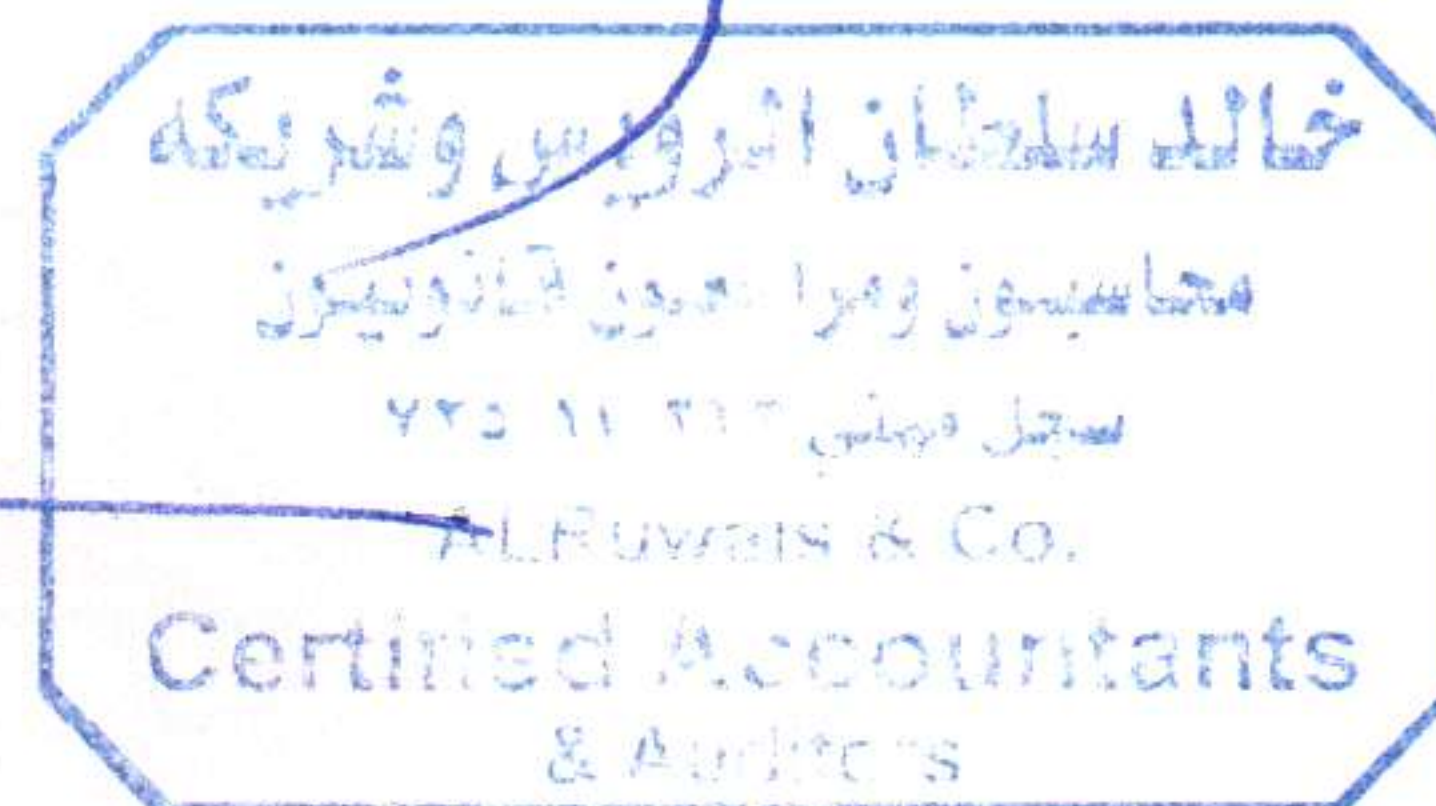 خالد سلطان الرويس وشريكه
محاسبون ومراجعون قانونيون
سجل مهني
ALRuwais & Co.
Certified Accountants
& Auditors